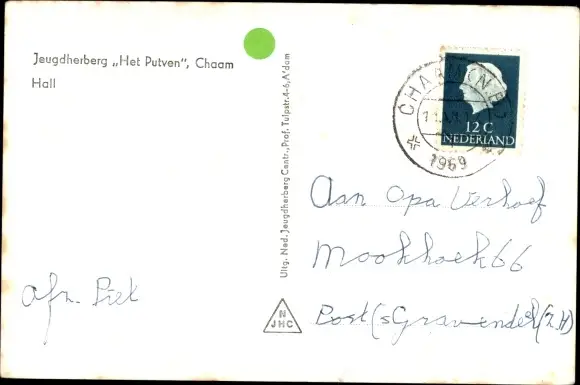 Jeugdherberg „Het Putven”, Chaam
Hall
afz. Piet
Uitg. Ned. Jeugdherberg Centr., Prof. Tulpstr. 4-6, A'dam
N
JHC
CHAAM (N.B.)
1969
12 C
NEDERLAND
Aan Opa Verhoef
Mookhoek 66
Post (sGravendeel (Z.H)